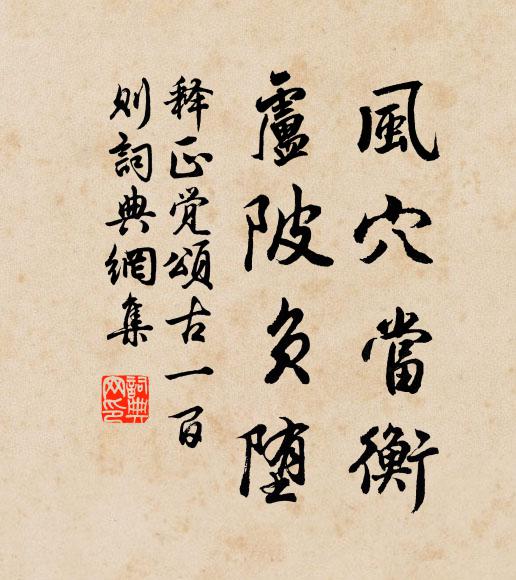 風穴當衡
盧陂負堕
释正覚頌古一百
则詞典網集
詞典
网印